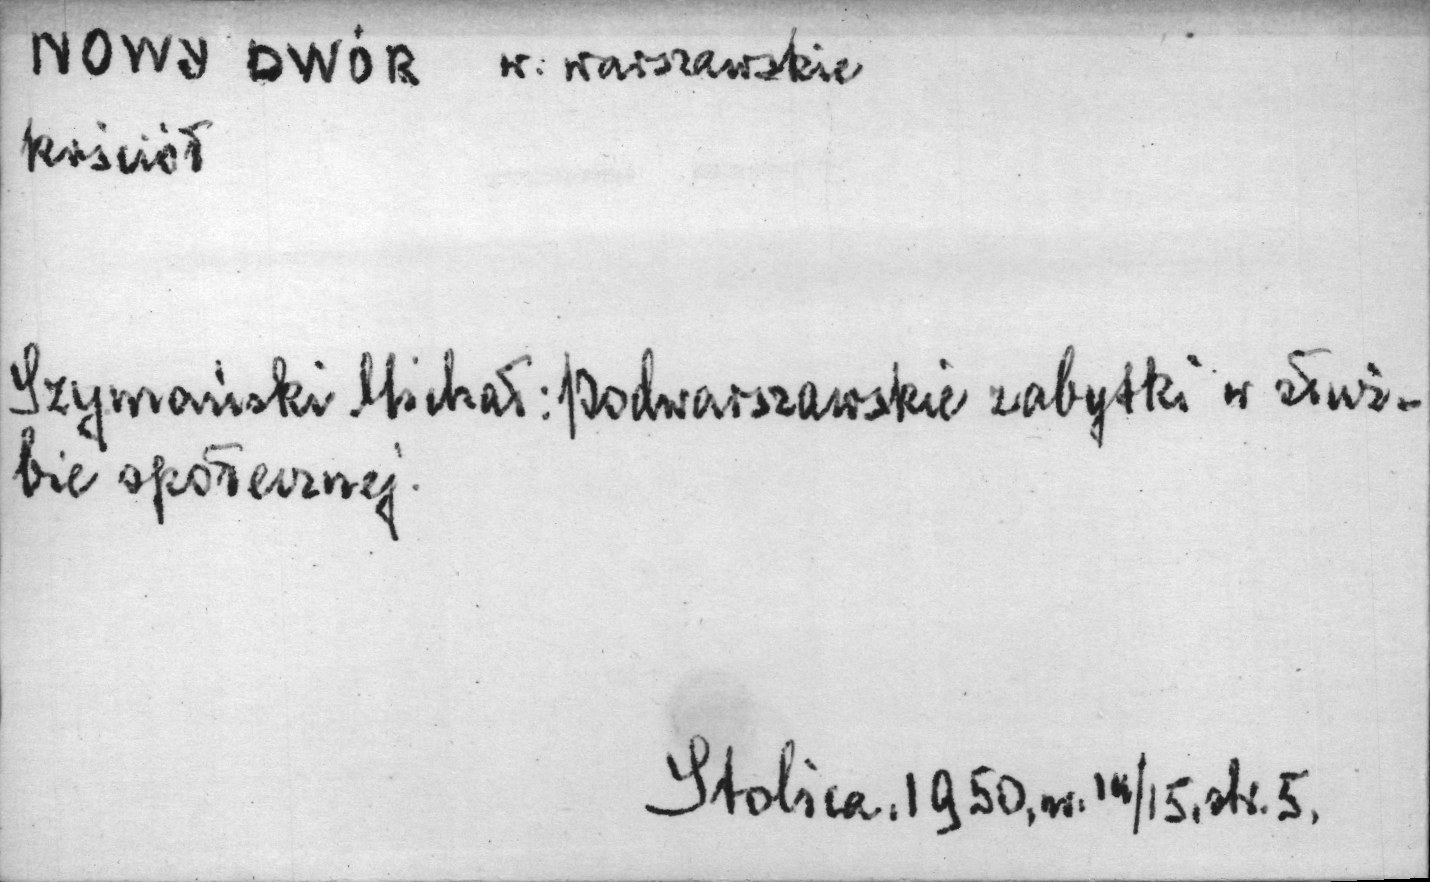 NOWY DWÓR w. warszawskie
kościół
Szymański Michał: Podwarszawskie zabytki w służ-
bie społecznej.
Stolica. 1950, nr. 14/15, str. 5.